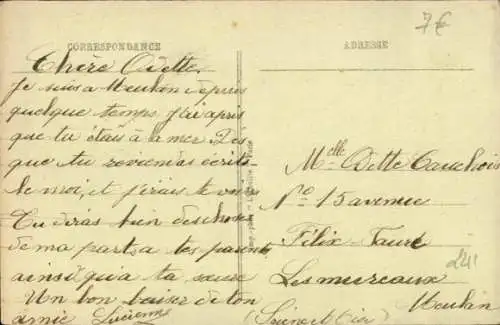 7€
CORRESPONDANCE
ADRESSE
Chère Odette.
Je suis a Meulan depuis
quelque temps j'ai apris
que tu étais à la mer. Dès
que tu reviendras écris-
le moi, et j'irais te voir
Tu diras bien des choses
de ma part a tes parents
ainsi qu'a ta soeur
Un bon baiser de ton
amie Lucienne
Melle Odette Cauchois
No 15 avenue
Félix-Faure
Les mureaux
Meulan
(Seine et Oise)